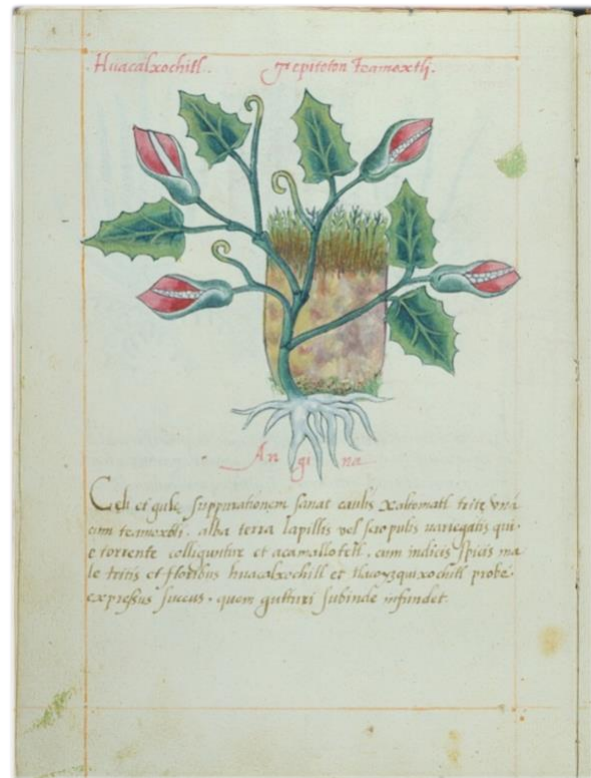 Huacalxochitl. Tepiton Teamoxtli.
An gi na
Coli et gule suppurationem sanat caulis xaltomatl trite vná
cum teamoxtli, alba terra lapillis vel scrupulis uariegatis qui
e torrente colliguntur et acamallotetl, cum indicis spicis ma
le tritis et floribus huacalxochitl et tlacoyzquixochitl probe
expressus succus, quem gutturi subinde infundet.